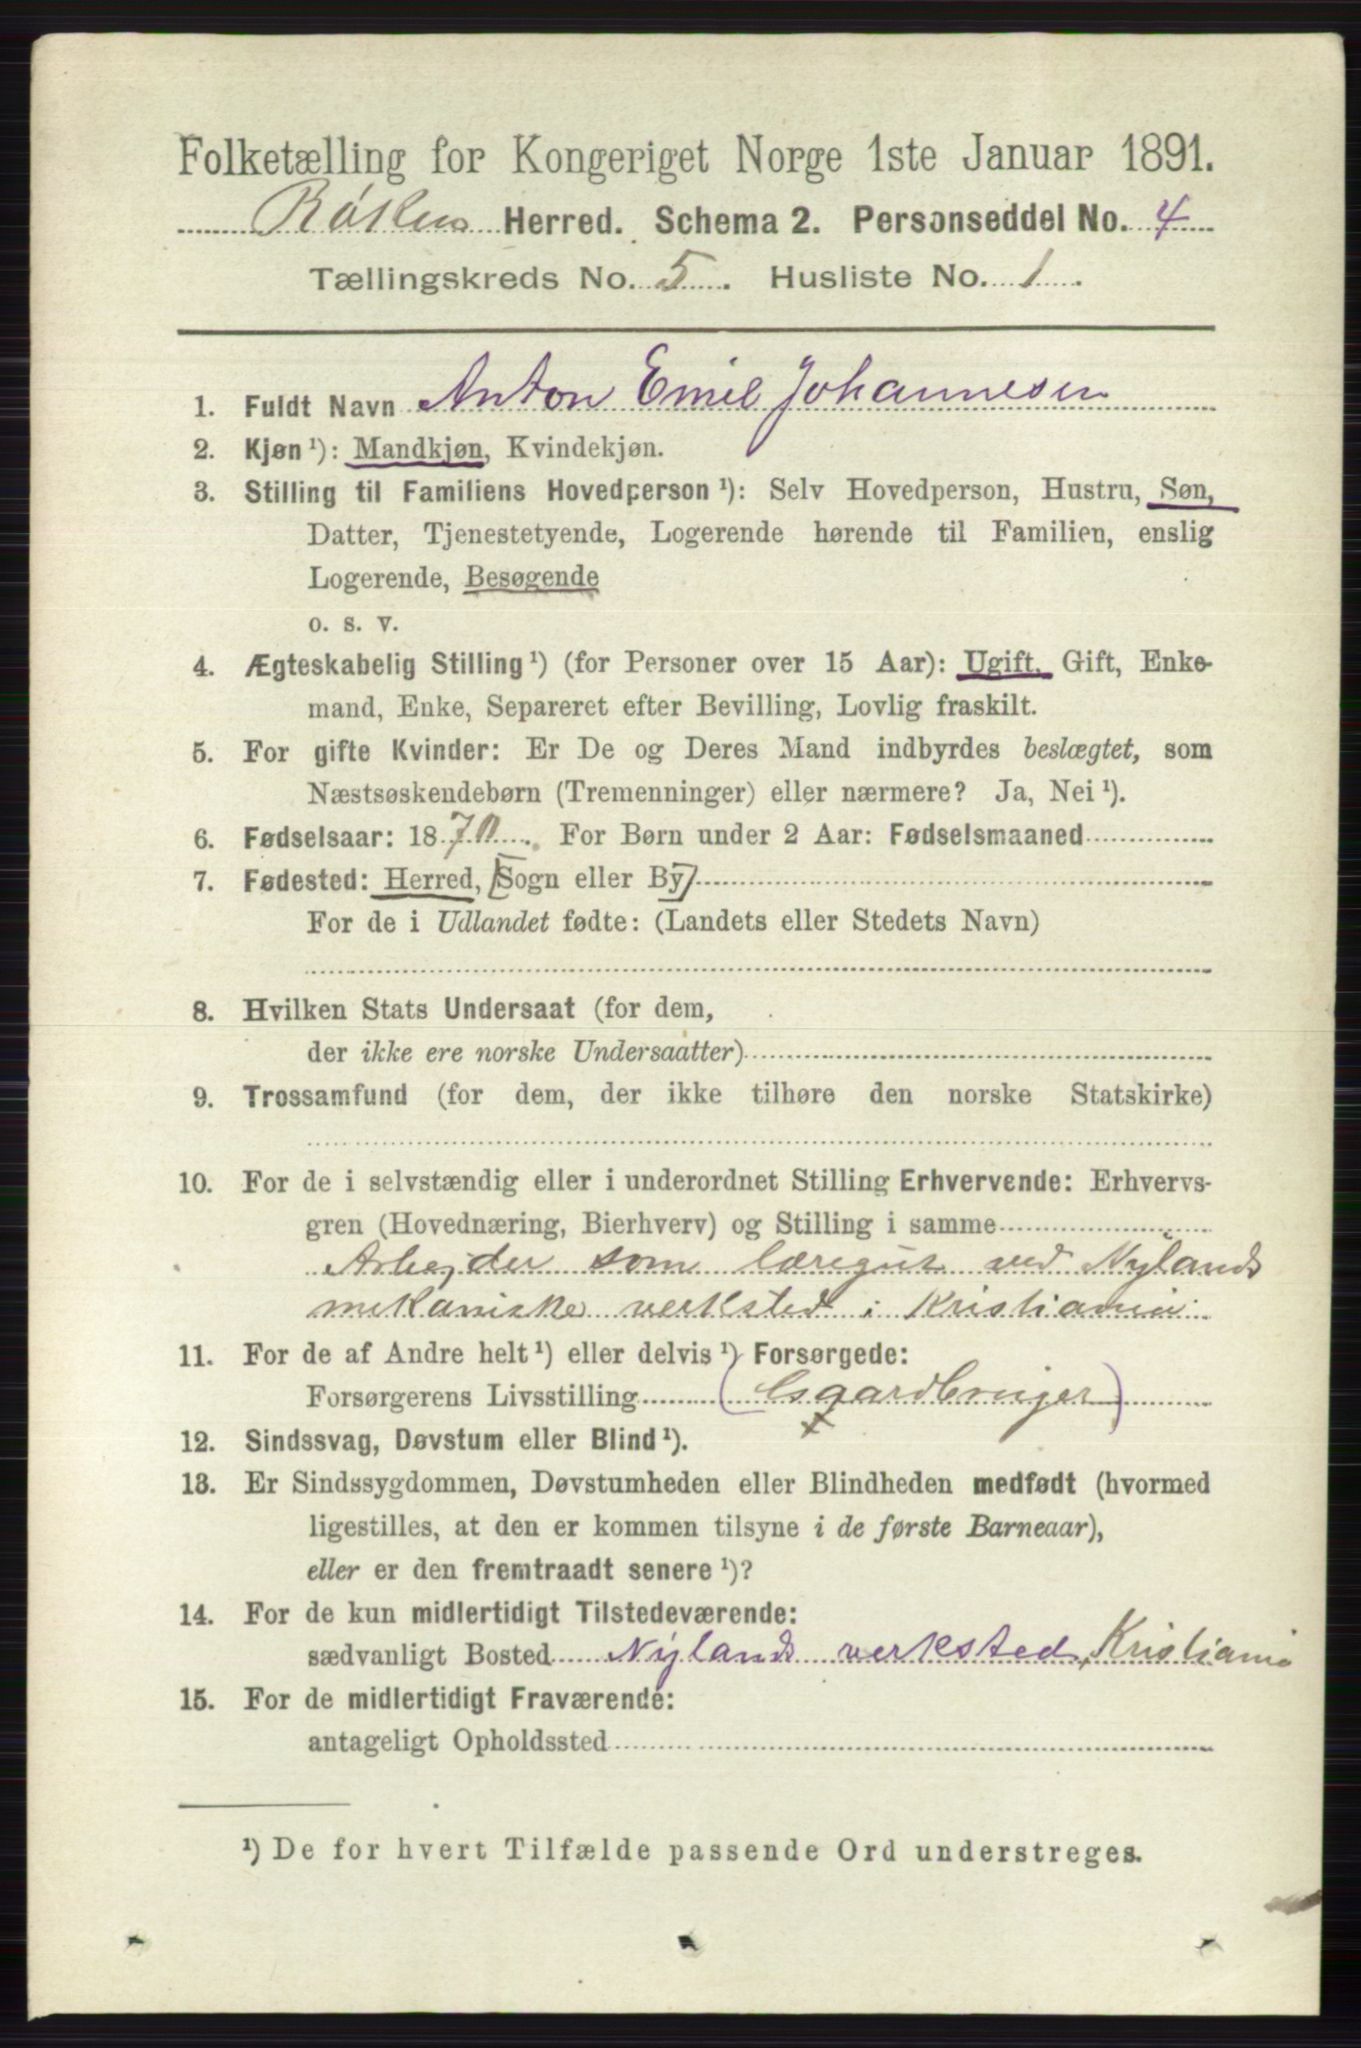 Folketælling for Kongeriget Norge 1ste Januar 1891.
Røken Herred. Schema 2. Personseddel No. 4
Tællingskreds No. 5. Husliste No. 1.
1. Fuldt Navn Anton Emil Johannesen
2. Kjøn ¹): Mandkjøn, Kvindekjøn.
3. Stilling til Familiens Hovedperson ¹): Selv Hovedperson, Hustru, Søn,
Datter, Tjenestetyende, Logerende hørende til Familien, enslig
Logerende, Besøgende
o. s. v.
4. Ægteskabelig Stilling ¹) (for Personer over 15 Aar): Ugift, Gift, Enke-
mand, Enke, Separeret efter Bevilling, Lovlig fraskilt.
5. For gifte Kvinder: Er De og Deres Mand indbyrdes beslægtet, som
Næstsøskendebørn (Tremenninger) eller nærmere? Ja, Nei ¹).
6. Fødselsaar: 1870. For Børn under 2 Aar: Fødselsmaaned
7. Fødested: Herred, [Sogn eller By]
For de i Udlandet fødte: (Landets eller Stedets Navn)
8. Hvilken Stats Undersaat (for dem,
der ikke ere norske Undersaatter)
9. Trossamfund (for dem, der ikke tilhøre den norske Statskirke)
10. For de i selvstændig eller i underordnet Stilling Erhvervende: Erhvervs-
gren (Hovednæring, Bierhverv) og Stilling i samme
Arbejder som læregut ved Nylands
mekaniske verksted i Kristiania
11. For de af Andre helt ¹) eller delvis ¹) Forsørgede:
Forsørgerens Livsstilling (Gaardbruger)
12. Sindssvag, Døvstum eller Blind ¹).
13. Er Sindssygdommen, Døvstumheden eller Blindheden medfødt (hvormed
ligestilles, at den er kommen tilsyne i de første Barneaar),
eller er den fremtraadt senere ¹)?
14. For de kun midlertidigt Tilstedeværende:
sædvanligt Bosted Nylands verksted, Kristiania
15. For de midlertidigt Fraværende:
antageligt Opholdssted
¹) De for hvert Tilfælde passende Ord understreges.